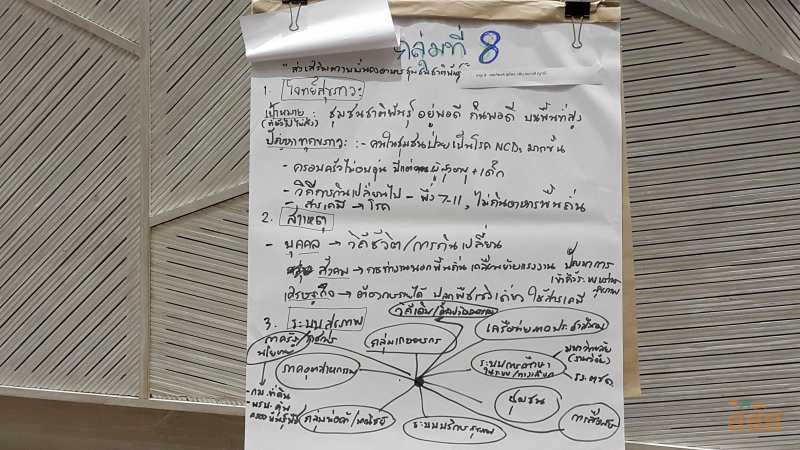 กลุ่มที่ 8
"ส่งเสริมความมั่นคงอาหารชุมชนชาติพันธุ์"
1. โจทย์สุขภาวะ
เป้าหมาย : ชุมชนชาติพันธุ์ อยู่พอดี กินพอดี บนพื้นที่สูง
ปัญหาทุกขภาวะ :- คนในชุมชนป่วยเป็นโรค NCDs มากขึ้น
- ครอบครัวไม่อบอุ่น มีแต่ผู้สูงอายุ + เด็ก
- วิถีการกินเปลี่ยนไป - พึ่ง 7-11, ไม่กินอาหารพื้นถิ่น
- สารเคมี → โรค
2. สาเหตุ
- บุคคล → วิถีชีวิต/การกินเปลี่ยน
สังคม → การทำงานนอกพื้นถิ่น เคลื่อนย้ายแรงงาน ปัญหาการ
เข้าถึงระบบ
สุขภาพ
เศรษฐกิจ → ต้องการรายได้ ปลูกพืชเชิงเดี่ยว ใช้สารเคมี
3. ระบบสุขภาพ
เครือข่ายภาคประชาสังคม
ภาครัฐ
นโยบาย
กลุ่มเกษตรกร
มหาวิทยาลัย
ระบบการศึกษา
ภาคอุตสาหกรรม
รร. ตชด.
ชุมชน
- กม. ที่ดิน
- พรบ.
กลุ่มพ่อค้า/พาณิชย์
ระบบบริการสุขภาพ
การสื่อสาร
สสส